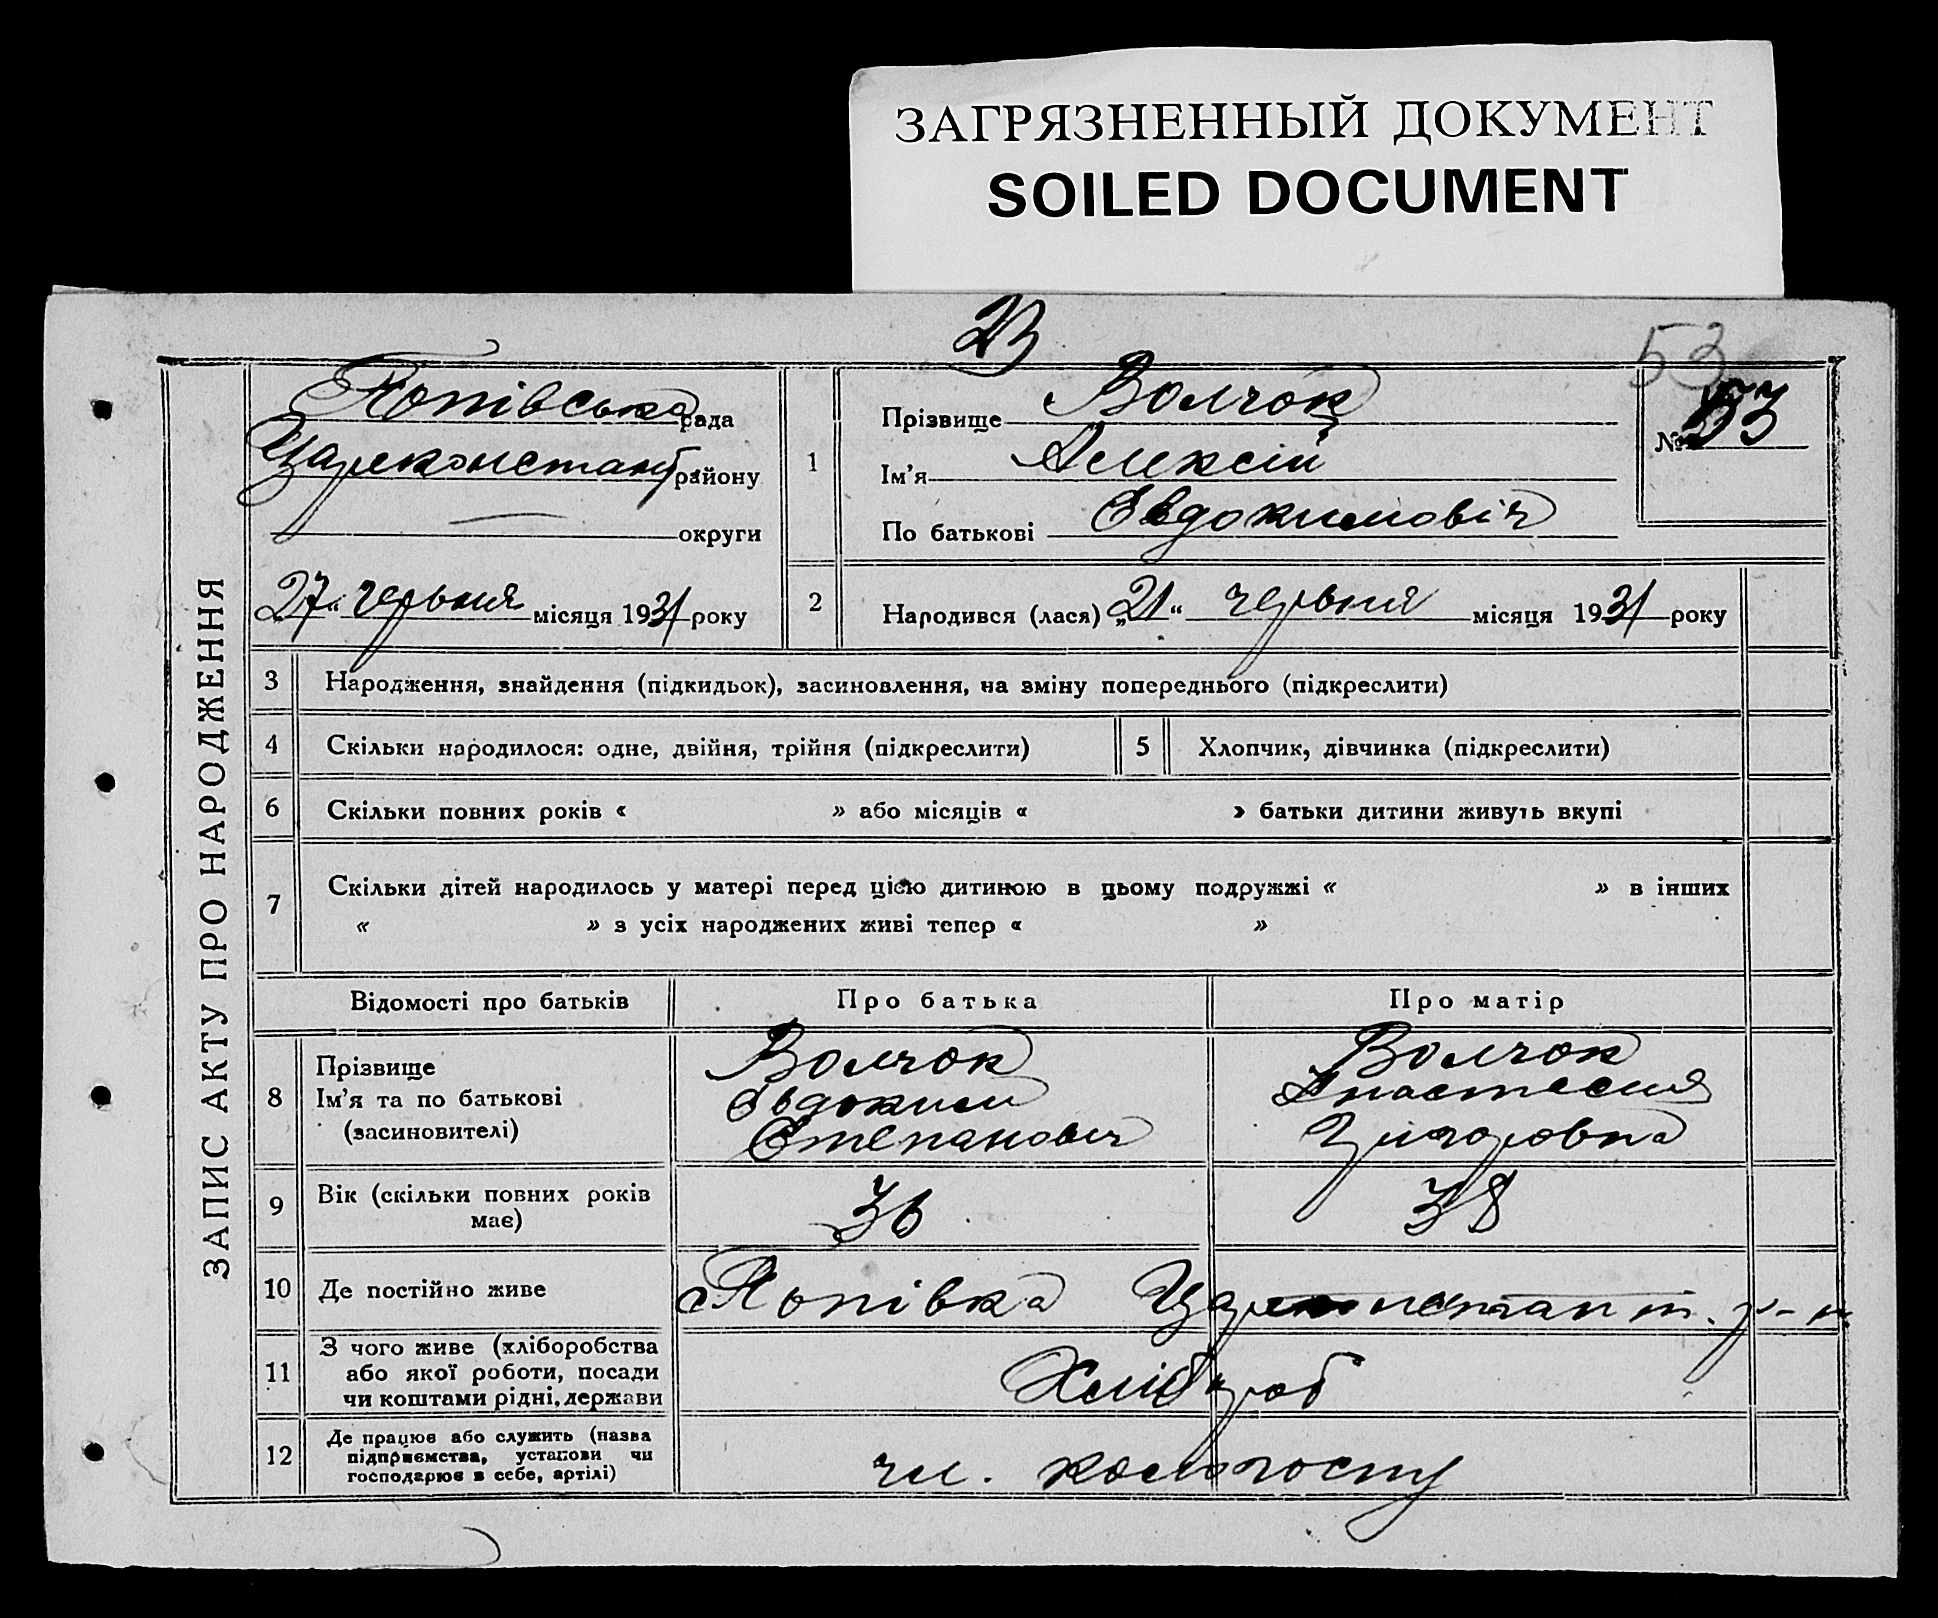 ЗАГРЯЗНЕННЫЙ ДОКУМЕНТ
SOILED DOCUMENT
53
ЗАПИС АКТУ ПРО НАРОДЖЕННЯ
Попівська рада
Царекостант району
округи
27 червня місяця 1931 року
1
Прізвище Волчок
Ім'я Алексій
По батькові Євдокимовіч
№ 53
2 Народився (лася) „21“ червня місяця 1931 року
3 Народження, знайдення (підкидьок), засиновлення, на зміну попереднього (підкреслити)
4 Скільки народилося: одне, двійня, трійня (підкреслити) 5 Хлопчик, дівчинка (підкреслити)
6 Скільки повних років « » або місяців « » батьки дитини живуть вкупі
7 Скільки дітей народилось у матері перед цією дитиною в цьому подружжі « » в інших
« » з усіх народжених живі тепер « »
Відомості про батьків Про батька Про матір
8 Прізвище Волчок Волчок
Ім'я та по батькові Євдоким Анастасия
(засиновителі) Степанович Григоровна
9 Вік (скільки повних років має) 36 38
10 Де постійно живе Попівка р-н.
11 З чого живе (хліборобства
або якої роботи, посади Хлібороб
чи коштами рідні, держави
12 Де працює або служить (назва
підприємства, установи чи чл. колгоспу
господарює в себе, артілі)